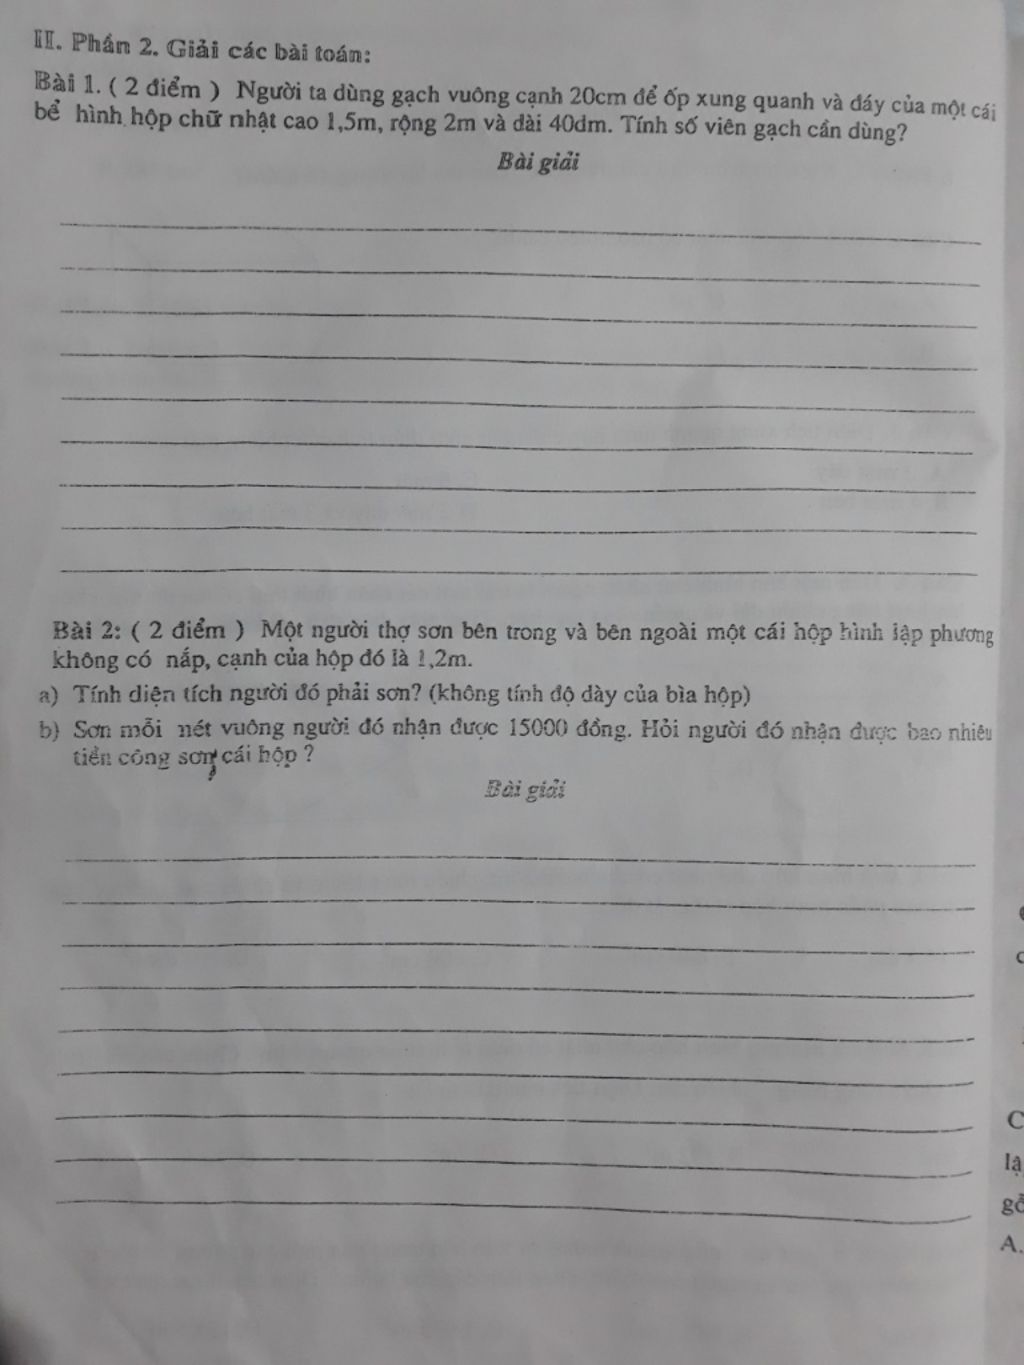 II. Phần 2. Giải các bài toán:
Bài 1. ( 2 điểm ) Người ta dùng gạch vuông cạnh 20cm để ốp xung quanh và đáy của một cái
bể hình hộp chữ nhật cao 1,5m, rộng 2m và dài 40dm. Tính số viên gạch cần dùng?
Bài giải
Bài 2: ( 2 điểm ) Một người thợ sơn bên trong và bên ngoài một cái hộp hình lập phương
không có nắp, cạnh của hộp đó là 1,2m.
a) Tính diện tích người đó phải sơn? (không tính độ dày của bìa hộp)
b) Sơn mỗi mét vuông người đó nhận được 15000 đồng. Hỏi người đó nhận được bao nhiêu
tiền công sơn cái hộp ?
Bài giải
C
lậ
gỗ
A.